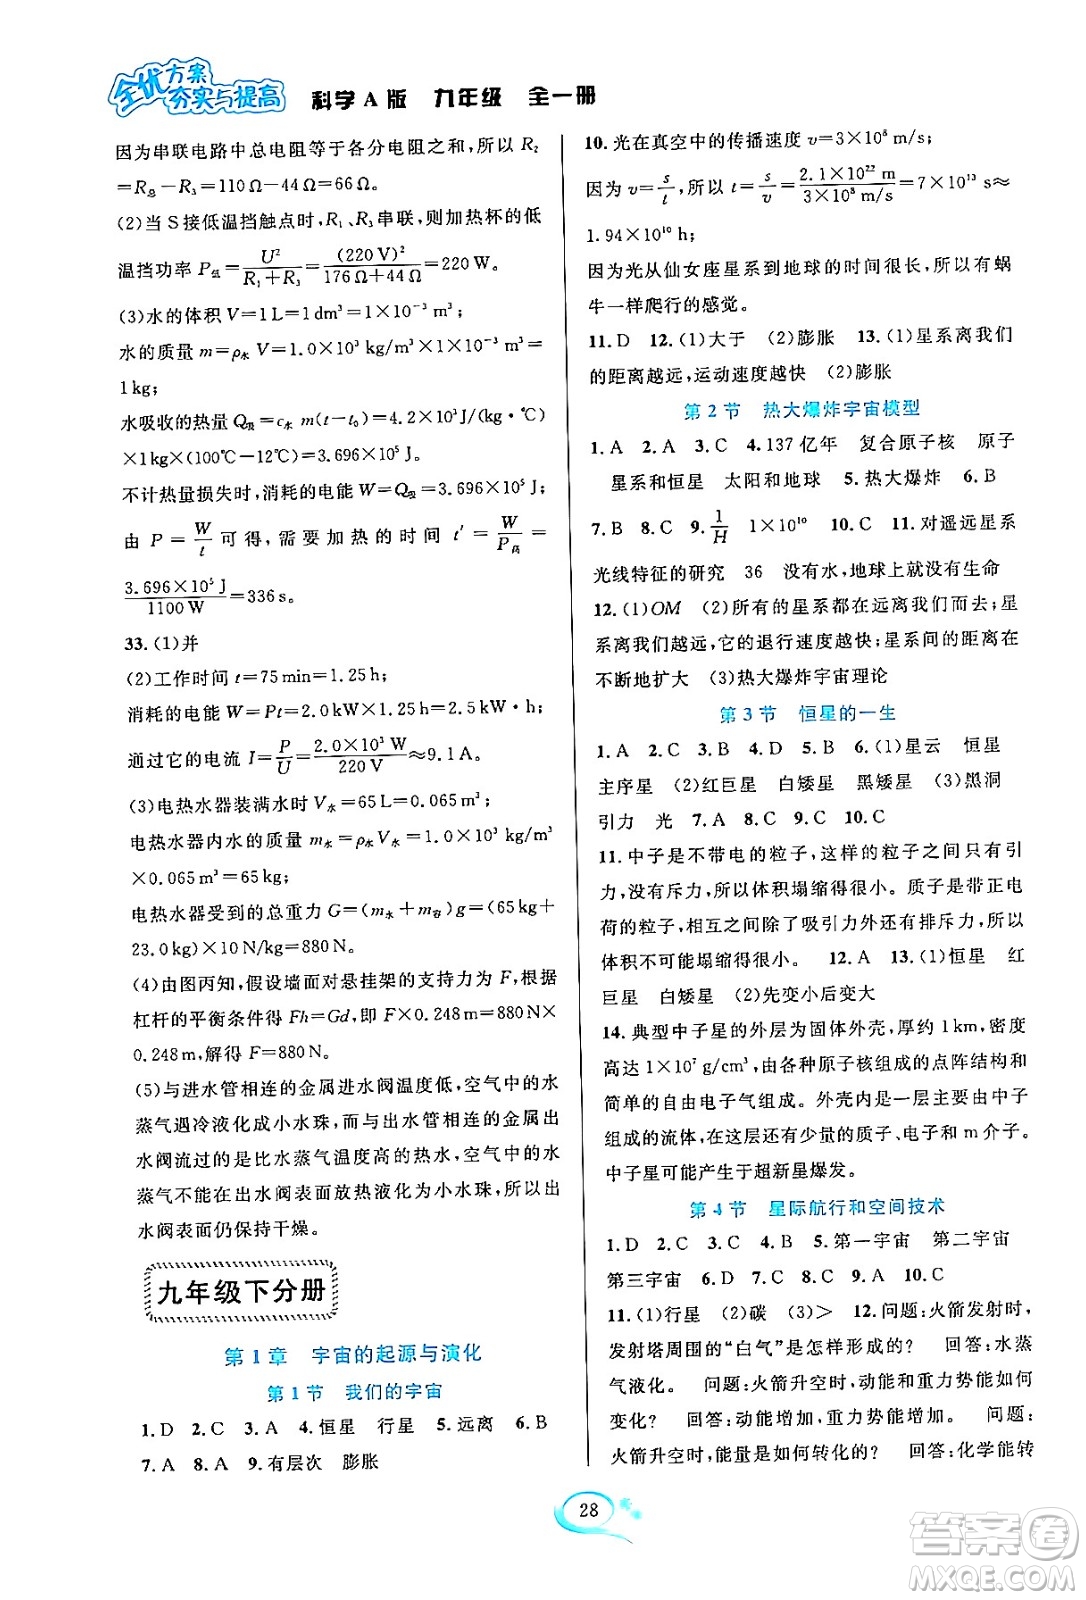 全优方案
夯实与提高
科学A版 九年级 全一册
因为串联电路中总电阻等于各分电阻之和,所以 R₂
=R总−R₃=110 Ω−44 Ω=66 Ω。
(2)当 S 接低温挡触点时,R₁、R₃串联,则加热杯的低
温挡功率 P低=U²/(R₁+R₃)=(220 V)²/(176 Ω+44 Ω)=220 W。
(3)水的体积 V=1 L=1 dm³=1×10⁻³ m³,
水的质量 m=ρ水 V=1.0×10³ kg/m³×1×10⁻³ m³=
1 kg;
水吸收的热量 Q吸=c水 m(t−t₀)=4.2×10³ J/(kg·℃)
×1 kg×(100℃−12℃)=3.696×10⁵ J;
不计热量损失时,消耗的电能 W=Q吸=3.696×10⁵ J,
由 P=W/t 可得,需要加热的时间 t′=W/P高=
3.696×10⁵ J/1100 W=336 s。
33.(1)并
(2)工作时间 t=75 min=1.25 h;
消耗的电能 W=Pt=2.0 kW×1.25 h=2.5 kW·h;
通过它的电流 I=P/U=2.0×10³ W/220 V≈9.1 A。
(3)电热水器装满水时 V水=65 L=0.065 m³;
电热水器内水的质量 m水=ρ水V水=1.0×10³ kg/m³
×0.065 m³=65 kg;
电热水器受到的总重力 G=(m水+m容)g=(65 kg+
23.0 kg)×10 N/kg=880 N。
(4)由图丙知,假设墙面对悬挂架的支持力为 F,根据
杠杆的平衡条件得 Fh=Gd,即 F×0.248 m=880 N×
0.248 m,解得 F=880 N。
(5)与进水管相连的金属进水阀温度低,空气中的水
蒸气遇冷液化成小水珠,而与出水管相连的金属出
水阀流过的是比水蒸气温度高的热水,空气中的水
蒸气不能在出水阀表面放热液化为小水珠,所以出
水阀表面仍保持干燥。
九年级下分册
第 1 章 宇宙的起源与演化
第 1 节 我们的宇宙
1. D 2. C 3. A 4. 恒星 行星 5. 远离 6. B
7. A 8. A 9. 有层次 膨胀
10. 光在真空中的传播速度 v=3×10⁸ m/s,
因为 v=s/t,所以 t=s/v=2.1×10²² m/3×10⁸ m/s=7×10¹³ s≈
1.94×10¹⁰ h;
因为光从仙女座星系到地球的时间很长,所以有蜗
牛一样爬行的感觉。
11. D 12.(1)大于 (2)膨胀 13.(1)星系离我们
的距离越远,运动速度越快 (2)膨胀
第 2 节 热大爆炸宇宙模型
1. A 2. A 3. C 4. 137 亿年 复合原子核 原子
星系和恒星 太阳和地球 5. 热大爆炸 6. B
7. B 8. C 9. 1/H 1×10¹⁰ 10. C 11. 对遥远星系
光线特征的研究 36 没有水,地球上就没有生命
12.(1)OM (2)所有的星系都在远离我们而去;星
系离我们越远,它的退行速度越快;星系间的距离在
不断地扩大 (3)热大爆炸宇宙理论
第 3 节 恒星的一生
1. A 2. C 3. B 4. D 5. B 6.(1)星云 恒星
主序星 (2)红巨星 白矮星 黑矮星 (3)黑洞
引力 光 7. A 8. C 9. C 10. C
11. 中子是不带电的粒子,这样的粒子之间只有引
力,没有斥力,所以体积塌缩得很小。质子是带正电
荷的粒子,相互之间除了吸引力外还有排斥力,所以
体积不可能塌缩得很小。 12. A 13.(1)恒星 红
巨星 白矮星 (2)先变小后变大
14. 典型中子星的外层为固体外壳,厚约 1 km,密度
高达 1×10⁷ g/cm³,由各种原子核组成的点阵结构和
简单的自由电子气组成。外壳内是一层主要由中子
组成的流体,在这层还有少量的质子、电子和 m 介子。
中子星可能产生于超新星爆发。
第 4 节 星际航行和空间技术
1. D 2. C 3. C 4. B 5. 第一宇宙 第二宇宙
第三宇宙 6. D 7. D 8. C 9. A 10. C
11.(1)行星 (2)碳 (3)> 12. 问题:火箭发射时,
发射塔周围的“白气”是怎样形成的? 回答:水蒸
气液化。 问题:火箭升空时,动能和重力势能如何
变化? 回答:动能增加,重力势能增加。 问题:
火箭升空时,能量是如何转化的? 回答:化学能转
28
答案卷
MXQE.COM